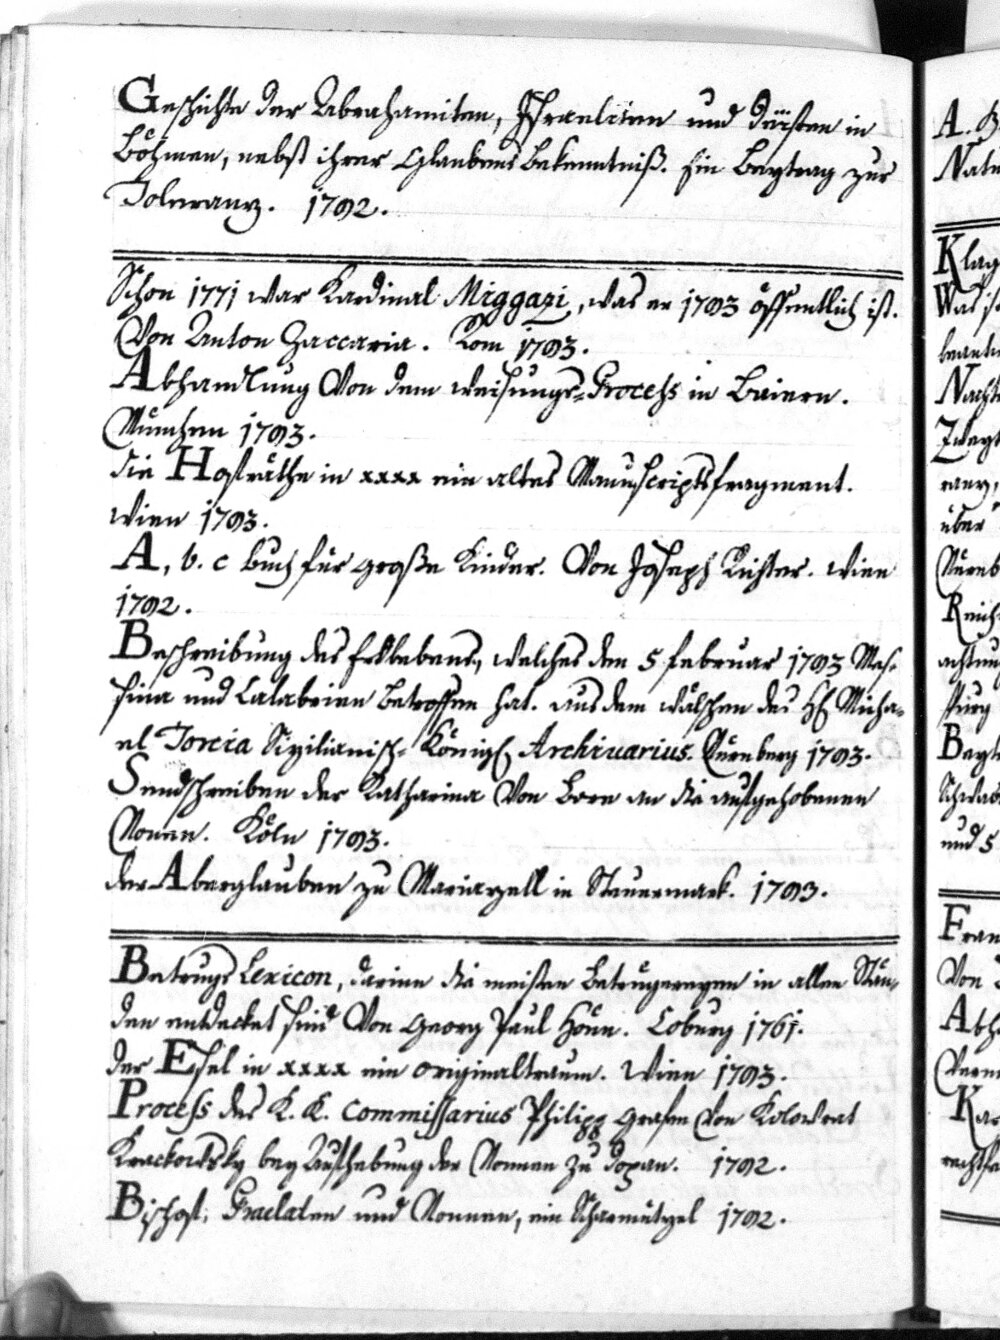 Geschichte der Abrahamiten, Israeliten und Deisten in
Böhmen, nebst ihrer Glaubens Bekenntniß. Ein Beytrag zur
Toleranz. 1792.
Schon 1771 war Kardinal Miggazi, was er 1793 öffentlich ist.
Von Anton Zaccaria. Rom 1793.
Abhandlung Von dem Weisungs-Process in Baiern.
München 1793.
die Hofräthe in xxxx ein altes Manuscriptsfragment.
Wien 1793.
A, b. c Buch für große Kinder. Von Joseph Richter. Wien
1792.
Beschreibung des Erdbebens, welches den 5 februar 1793 Mes-
sina und Calabrien betroffen hat. aus dem wälschen des H Micha-
el Torcia Sizilianisch- Königl Archivarius. Nürenberg 1793.
Sendschreiben der Katharina Von Bore an die aufgehobenen
Nonnen. Köln 1793.
der Aberglauben zu Mariazell in Steuermark. 1793.
Betrugs Lexicon, darinn die meisten Betrügereyen in allen Stän-
den entdecket sind Von Georg Paul Hönn. Coburg 1761.
der Esel in xxxx ein originaltraum. Wien 1793.
Process des K. K. Commissarius Philipp Grafen Von Kolowrat
Krackowsky bey Aufhebung der Nonnen zu Doxan. 1792.
Bischof, Praelaten und Nonnen, ein Scharmützel 1792.
A.
Natu
Klag
Was ist
beantw
Nacht
Zweyt
ranz,
über
Nürenb
Reich
achtung
Burg
Beyt
Schwab
und 5
Fran
Von
Abh
Kar
rechtfe